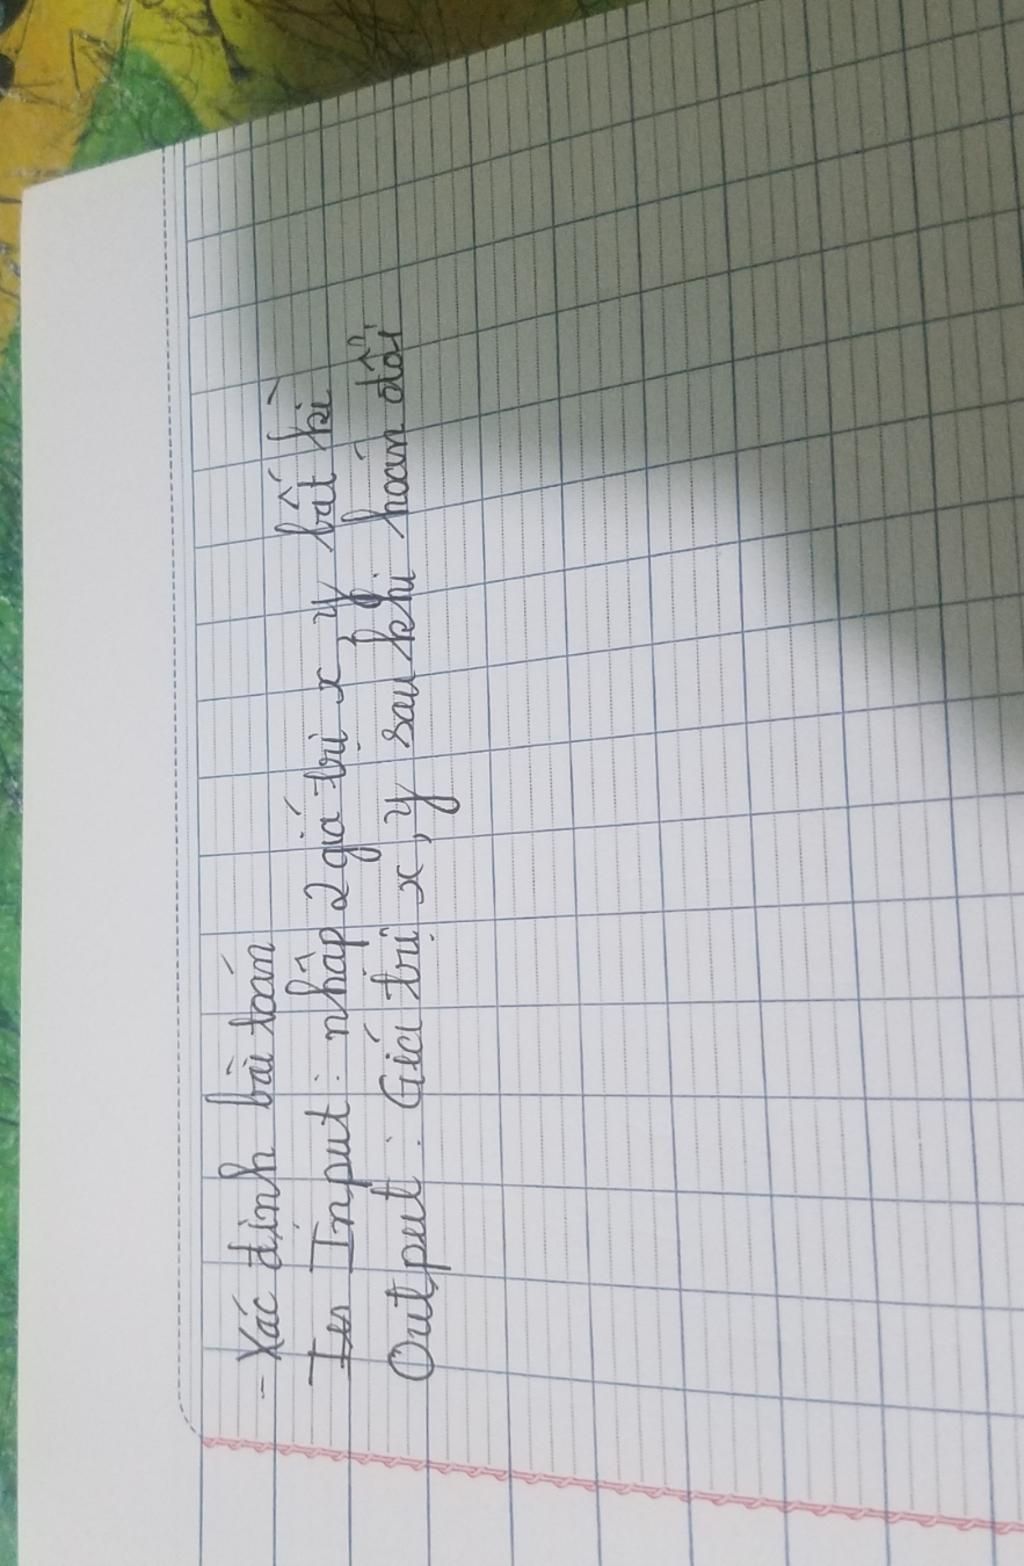 - Xác định bài toán
Input: nhập 2 giá trị x, y bất kì
Output: Giá trị x, y sau khi hoán đổi